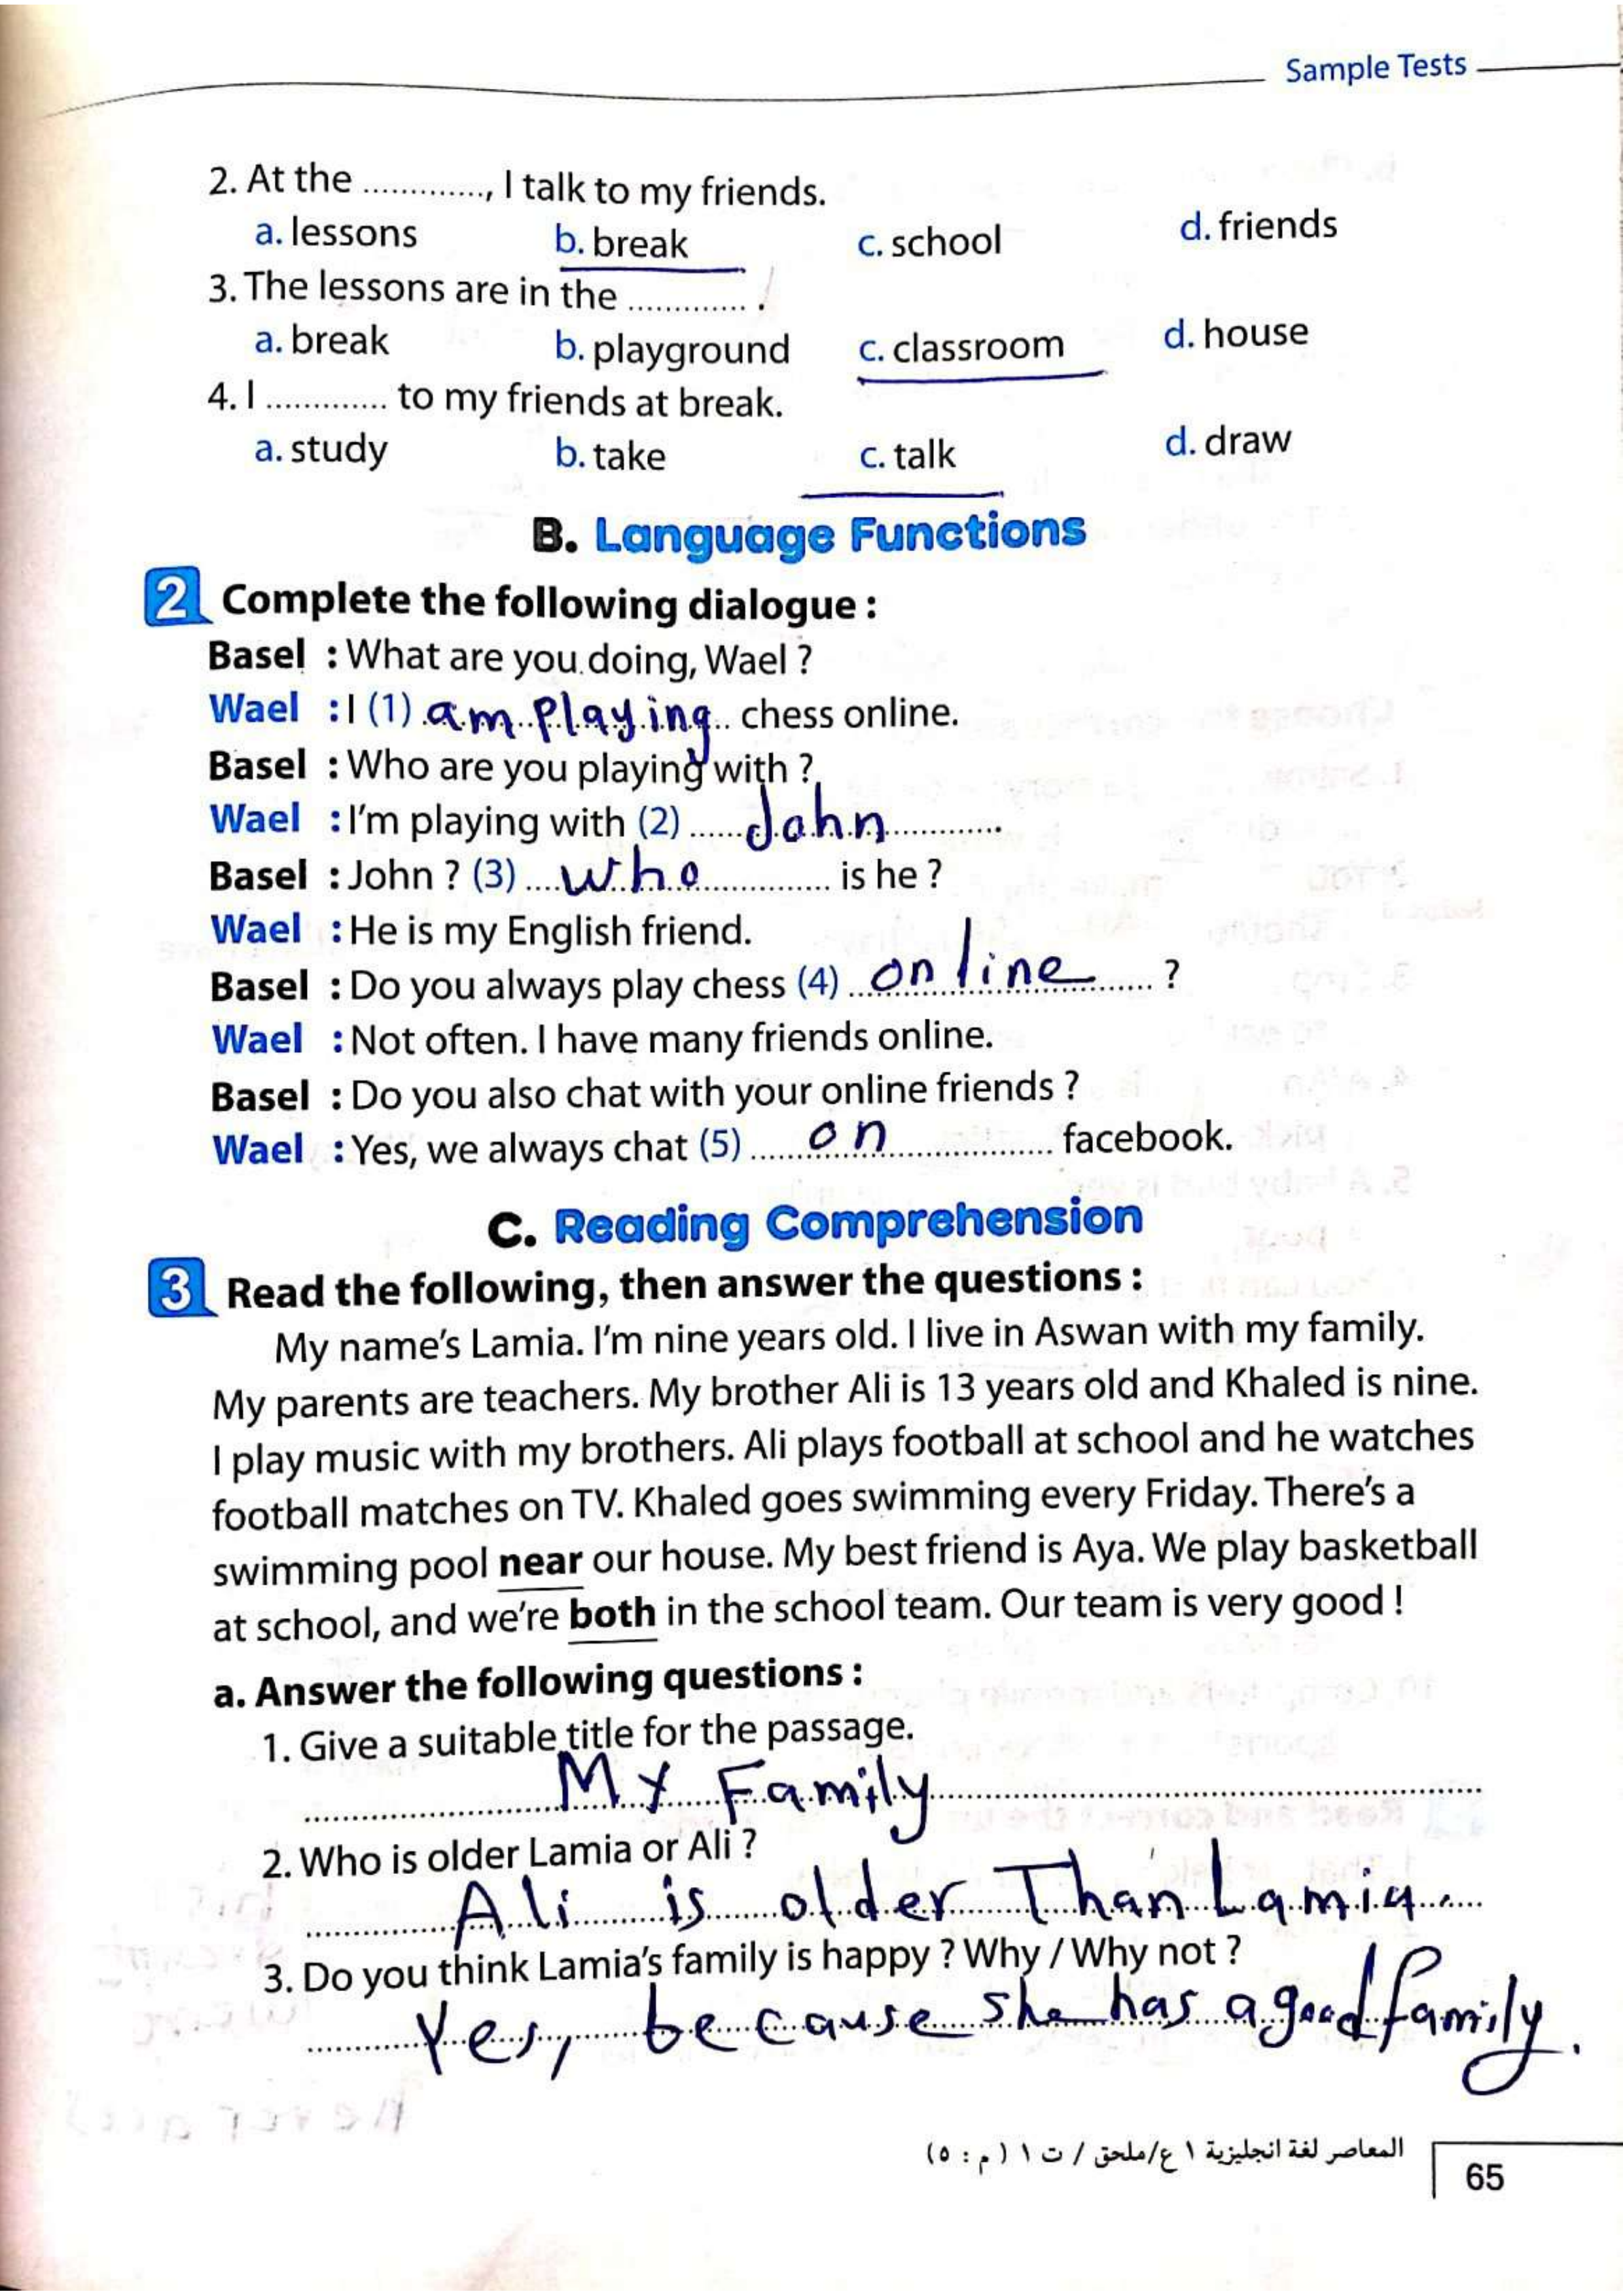 Sample Tests
2. At the ............., I talk to my friends.
a. lessons b. break c. school d. friends
3. The lessons are in the ............. .
a. break b. playground c. classroom d. house
4. I ............. to my friends at break.
a. study b. take c. talk d. draw
B. Language Functions
2 Complete the following dialogue :
Basel : What are you doing, Wael ?
Wael : I (1) am playing chess online.
Basel : Who are you playing with ?
Wael : I'm playing with (2) John
Basel : John ? (3) who is he ?
Wael : He is my English friend.
Basel : Do you always play chess (4) online ?
Wael : Not often. I have many friends online.
Basel : Do you also chat with your online friends ?
Wael : Yes, we always chat (5) on facebook.
C. Reading Comprehension
3 Read the following, then answer the questions :
My name's Lamia. I'm nine years old. I live in Aswan with my family.
My parents are teachers. My brother Ali is 13 years old and Khaled is nine.
I play music with my brothers. Ali plays football at school and he watches
football matches on TV. Khaled goes swimming every Friday. There's a
swimming pool near our house. My best friend is Aya. We play basketball
at school, and we're both in the school team. Our team is very good !
a. Answer the following questions :
1. Give a suitable title for the passage.
My Family
2. Who is older Lamia or Ali ?
Ali is older Than Lamia.
3. Do you think Lamia's family is happy ? Why / Why not ?
Yes, because she has a good family.
المعاصر لغة انجليزية ١ ع/ملحق / ت ١ ( م : ٥ )
65